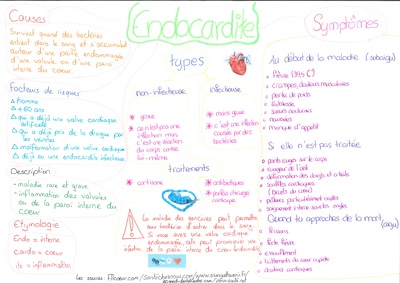 Endocardite
Causes
Survient quand des bactéries
entrent dans le sang et s'accumulent
autour d'une partie endommagée
d'une valvule ou d'une paroi
interne du coeur.
Facteurs de risques
homme
+ 60 ans
qui a déjà une valve cardiaque
artificielle
qui a déjà pris de la drogue par
les veines
malformation d'une valve cardiaque
déjà eu une endocardite infectieuse
Description
maladie rare et grave
inflammation des valvules
ou de la paroi interne du
coeur
Etymologie
Endo = interne
cardo = coeur
ite = inflammation
types
non-infectieuse
grave
ce n'est pas une
infection mais
c'est une réaction
du corps contre
lui-même
infectieuse
mais grave
c'est une infection
causée par des
bactéries.
traitements
cortisone
antibiotiques
chirurgie
cardiaque
La maladie des gencives peut permettre
aux bactéries d'entrer dans le sang.
Si vous avez une valve cardiaque
endommagée, cela peut provoquer une
infection de la paroi interne du coeur
Symptômes
Au début de la maladie (subaigu)
Fièvre (39,5 C°)
crampes, douleurs musculaires
perte de poids
faiblesse
sueurs nocturnes
nausées
manque d'appétit
Si elle n'est pas traitée
sur le corps
rougeur de l'oeil
déformation des doigts et orteils
souffles cardiaques
(bruits du coeur)
Quand tu approches de la mort, (aigu)
Frissons
forte fièvre
essoufflement
battements de coeur rapide
douleurs cardiaques
Les sources: